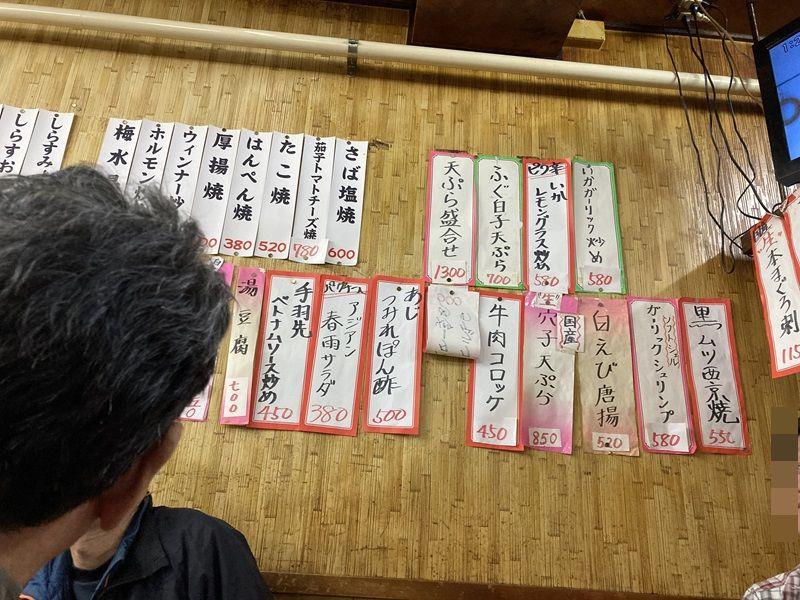 さば塩焼
600
茄子トマトチーズ焼
780
たこ焼
520
はんぺん焼
380
厚揚焼
ウィンナー炒
ホルモン
梅水
しらすみ
しらすお
いかガーリック炒め
580
ピリ辛 いか
レモングラス炒め
580
ふぐ白子天ぷら
700
天ぷら盛合せ
1300
生本まぐろ刺
115
黒ムツ西京焼
550
ソフトシェル
ガーリックシュリンプ
580
白えび唐揚
520
国産
穴子天ぷら
850
牛肉コロッケ
450
あじ
つみれぽん酢
500
アジアン
春雨サラダ
380
手羽先
ベトナムソース炒め
450
湯豆腐
七00